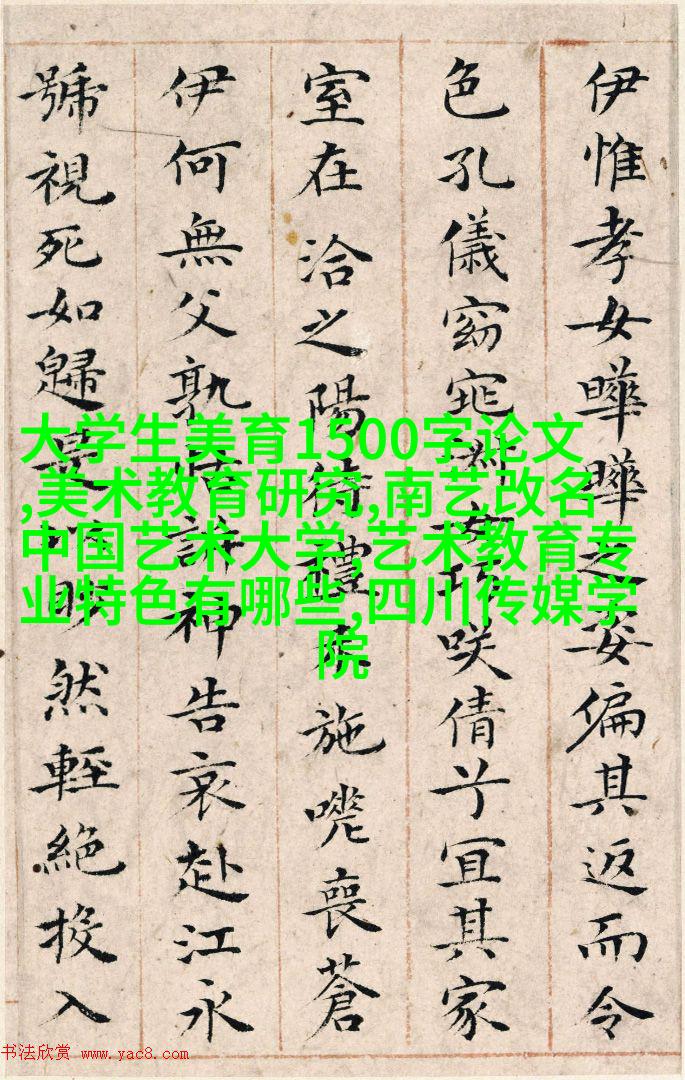 伊惟孝女曄曄之姿偏其返而令
色孔儀窈窕淑女巧咲倩兮宜其家
室在洽之陽待禮未施嗟喪蒼
伊何無父孰怙訴神告哀赴江永
號視死如歸是以眇然輕絕投入
大学生美育1500字论文
,美术教育研究,南艺改名
中国艺术大学,艺术教育专
业特色有哪些,四川传媒学
院
书法欣赏 www.yac8.com